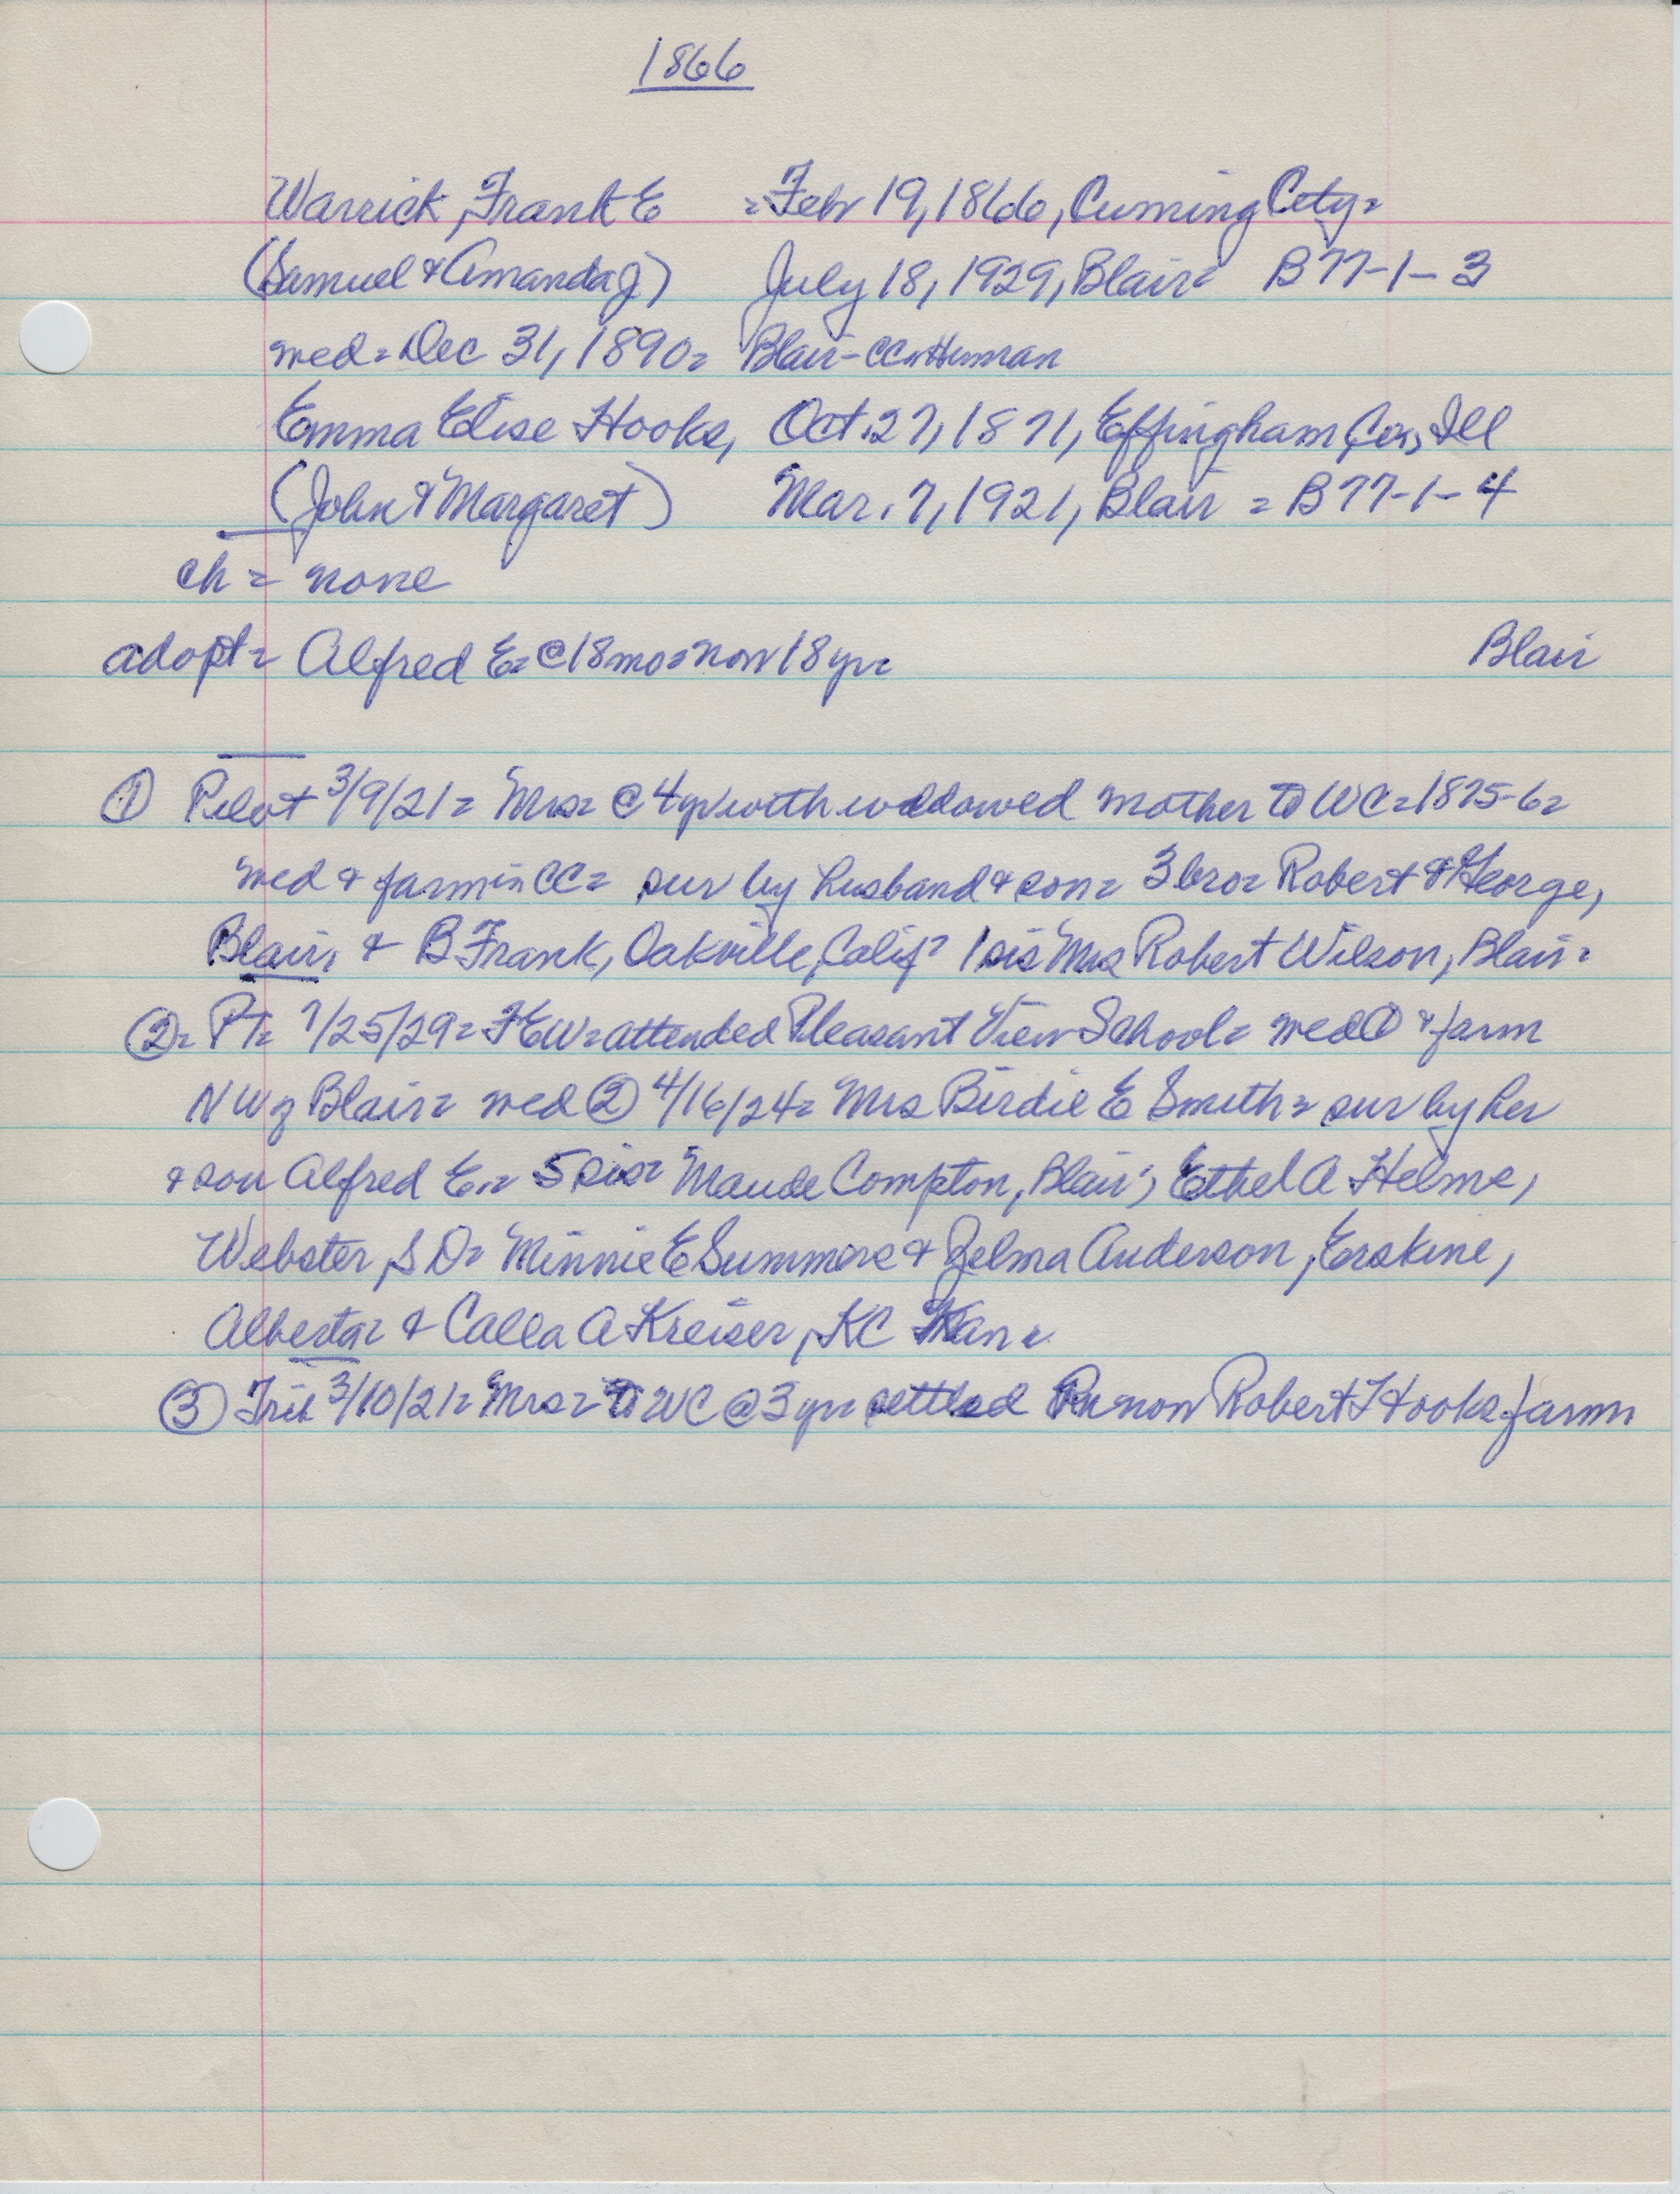 1866
Warrick, Frank E = Feb 19, 1866, Cuming City =
(Samuel & Amanda J) July 18, 1929, Blair = B77-1-3
wed = Dec 31, 1890 = Blair - CC
Emma Elise Hooks, Oct. 27, 1871, Effingham Co., Ill
(John & Margaret) Mar. 7, 1921, Blair = B77-1-4
ch = none
adopt = Alfred E = @ 18 mo = now 18 yr = Blair
① Pilot 3/9/21 = Mrs = @ 4 yr with widowed mother to WC = 1875-6 =
wed & farm in CC = sur by husband & son = 3 bro = Robert & George,
Blair, & B Frank, Oakville, Calif = 1 sis Mrs Robert Wilson, Blair =
② = Pi = 7/25/29 = FEW = attended Pleasant View School = wed ① & farm
NW of Blair = wed ② 4/16/24 = Mrs Birdie E Smith = sur by her
& son Alfred E. = 5 sis = Maude Compton, Blair; Ethel A Helms,
Webster, S D = Minnie E Summers & Zelma Anderson, Erskine,
Alberta = & Calla A Kreiser, KC Kan =
③ Trib 3/10/21 = Mrs = to WC @ 3 yr = settled on now Robert Hooks farm